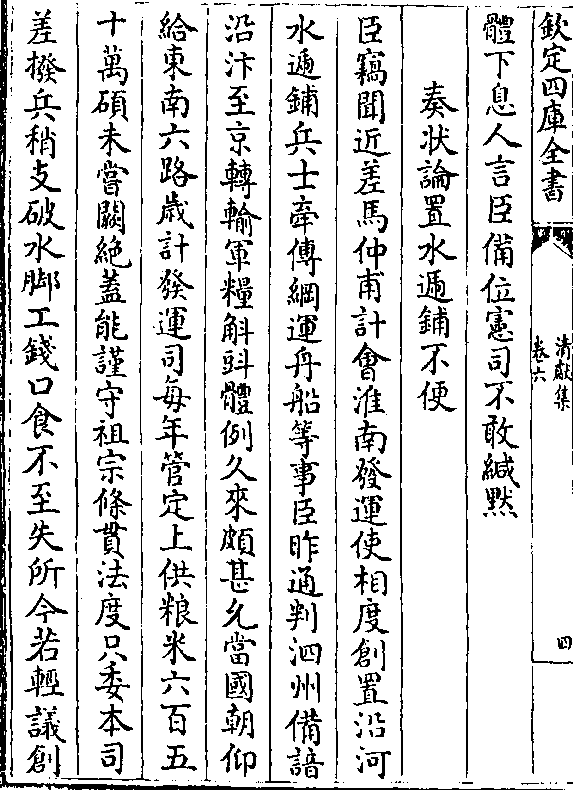 欽定四庫全書
清獻集
卷六
四
體下息人言臣備位憲司不敢緘默
奏状論置水遞鋪不便
臣竊聞近差馬仲甫計會淮南發運使相度創置沿河
水遞鋪兵士牽傳綱運舟船等事臣昨通判泗州備諳
沿汴至京轉輸軍糧斛㪷體例久來頗甚允當國朝仰
給東南六路歲計發運司每年管定上供粮米六百五
十萬碩未嘗闕絶蓋能謹守祖宗條貫法度只委本司
差撥兵稍支破水脚工錢口食不至失所今若輕議創